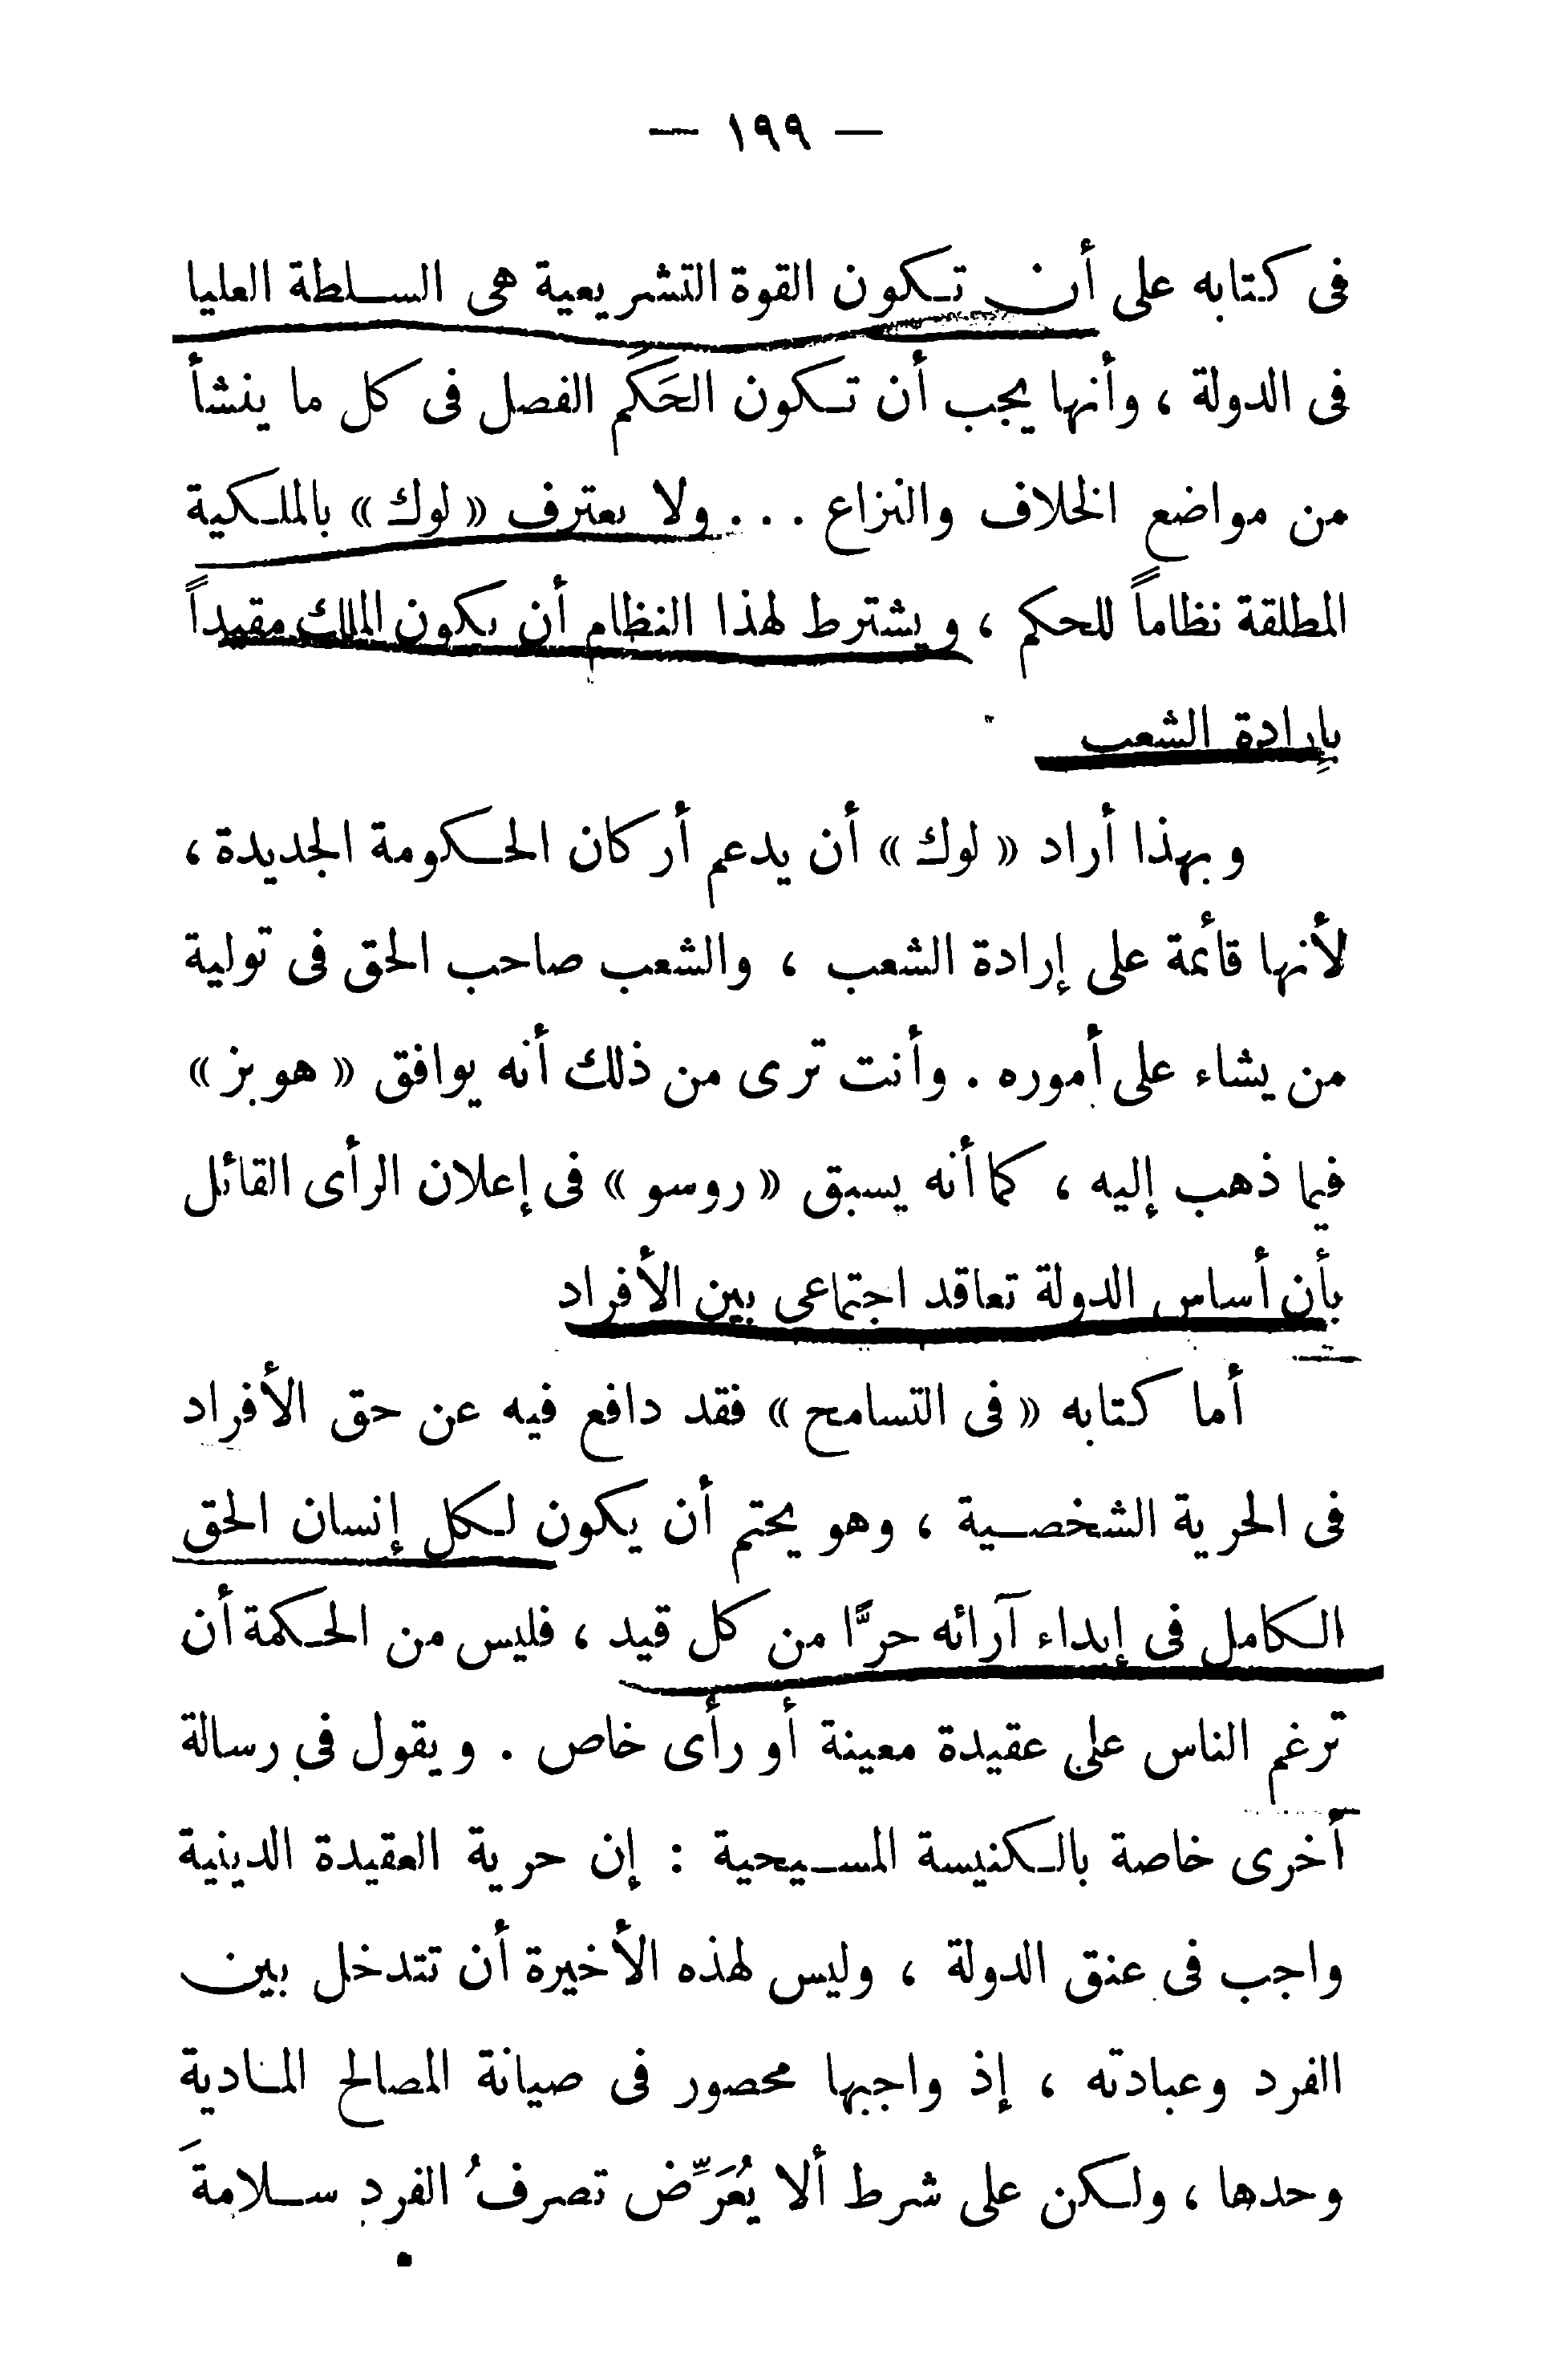 — ١٩٩ —
فى كتابه على أن تكون القوة التشريعية هى السلطة العليا
فى الدولة ، وأنها يجب أن تكون الحَكَم الفصل فى كل ما ينشأ
من مواضع الخلاف والنزاع . . . ولا يعترف « لوك » بالملكية
المطلقة نظاماً للحكم ، ويشترط لهذا النظام أن يكون الملك مقيداً
بإرادة الشعب
وبهذا أراد « لوك » أن يدعم أركان الحكومة الجديدة ،
لأنها قائمة على إرادة الشعب ، والشعب صاحب الحق فى تولية
من يشاء على أموره . وأنت ترى من ذلك أنه يوافق « هوبز »
فيما ذهب إليه ، كما أنه يسبق « روسو » فى إعلان الرأى القائل
بأن أساس الدولة تعاقد اجتماعى بين الأفراد
أما كتابه « فى التسامح » فقد دافع فيه عن حق الأفراد
فى الحرية الشخصية ، وهو يحتم أن يكون لكل إنسان الحق
الكامل فى إبداء آرائه حرًّا من كل قيد ، فليس من الحكمة أن
ترغم الناس على عقيدة معينة أو رأى خاص . ويقول فى رسالة
أخرى خاصة بالكنيسة المسيحية : إن حرية العقيدة الدينية
واجب فى عنق الدولة ، وليس لهذه الأخيرة أن تتدخل بين
الفرد وعبادته ، إذ واجبها محصور فى صيانة المصالح المادية
وحدها ، ولكن على شرط ألا يُعَرِّض تصرفُ الفرد سلامةَ